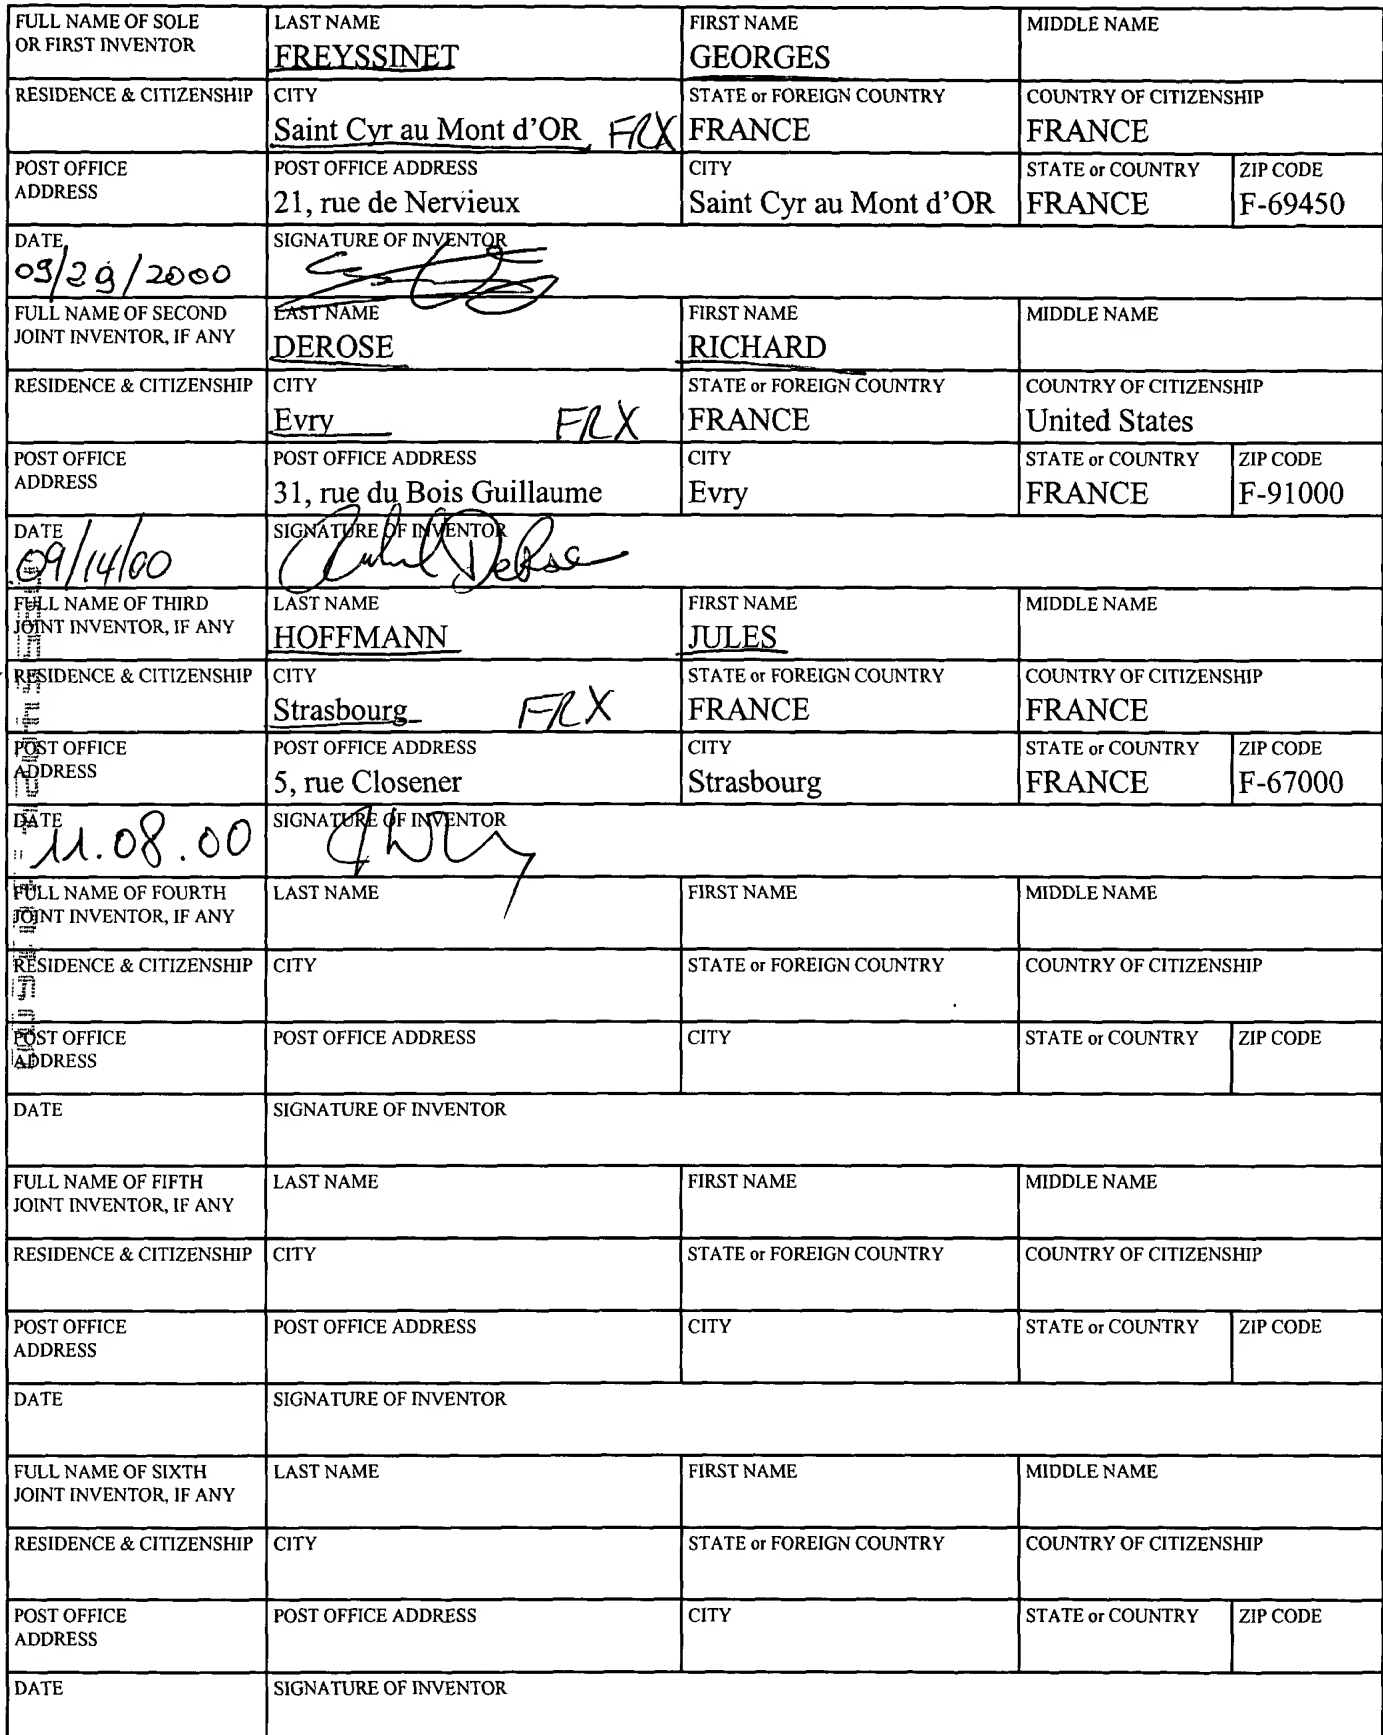 FULL NAME OF SOLE OR FIRST INVENTOR
LAST NAME
FREYSSINET
FIRST NAME
GEORGES
MIDDLE NAME
RESIDENCE & CITIZENSHIP
CITY
Saint Cyr au Mont d'OR FRX
STATE or FOREIGN COUNTRY
FRANCE
COUNTRY OF CITIZENSHIP
FRANCE
POST OFFICE ADDRESS
POST OFFICE ADDRESS
21, rue de Nervieux
CITY
Saint Cyr au Mont d'OR
STATE or COUNTRY
FRANCE
ZIP CODE
F-69450
DATE
09/29/2000
SIGNATURE OF INVENTOR
FULL NAME OF SECOND JOINT INVENTOR, IF ANY
LAST NAME
DEROSE
FIRST NAME
RICHARD
MIDDLE NAME
RESIDENCE & CITIZENSHIP
CITY
Evry FRX
STATE or FOREIGN COUNTRY
FRANCE
COUNTRY OF CITIZENSHIP
United States
POST OFFICE ADDRESS
POST OFFICE ADDRESS
31, rue du Bois Guillaume
CITY
Evry
STATE or COUNTRY
FRANCE
ZIP CODE
F-91000
DATE
09/14/00
SIGNATURE OF INVENTOR
Richard DeRose
FULL NAME OF THIRD JOINT INVENTOR, IF ANY
LAST NAME
HOFFMANN
FIRST NAME
JULES
MIDDLE NAME
RESIDENCE & CITIZENSHIP
CITY
Strasbourg FRX
STATE or FOREIGN COUNTRY
FRANCE
COUNTRY OF CITIZENSHIP
FRANCE
POST OFFICE ADDRESS
POST OFFICE ADDRESS
5, rue Closener
CITY
Strasbourg
STATE or COUNTRY
FRANCE
ZIP CODE
F-67000
DATE
11.08.00
SIGNATURE OF INVENTOR
FULL NAME OF FOURTH JOINT INVENTOR, IF ANY
LAST NAME
FIRST NAME
MIDDLE NAME
RESIDENCE & CITIZENSHIP
CITY
STATE or FOREIGN COUNTRY
COUNTRY OF CITIZENSHIP
POST OFFICE ADDRESS
POST OFFICE ADDRESS
CITY
STATE or COUNTRY
ZIP CODE
DATE
SIGNATURE OF INVENTOR
FULL NAME OF FIFTH JOINT INVENTOR, IF ANY
LAST NAME
FIRST NAME
MIDDLE NAME
RESIDENCE & CITIZENSHIP
CITY
STATE or FOREIGN COUNTRY
COUNTRY OF CITIZENSHIP
POST OFFICE ADDRESS
POST OFFICE ADDRESS
CITY
STATE or COUNTRY
ZIP CODE
DATE
SIGNATURE OF INVENTOR
FULL NAME OF SIXTH JOINT INVENTOR, IF ANY
LAST NAME
FIRST NAME
MIDDLE NAME
RESIDENCE & CITIZENSHIP
CITY
STATE or FOREIGN COUNTRY
COUNTRY OF CITIZENSHIP
POST OFFICE ADDRESS
POST OFFICE ADDRESS
CITY
STATE or COUNTRY
ZIP CODE
DATE
SIGNATURE OF INVENTOR